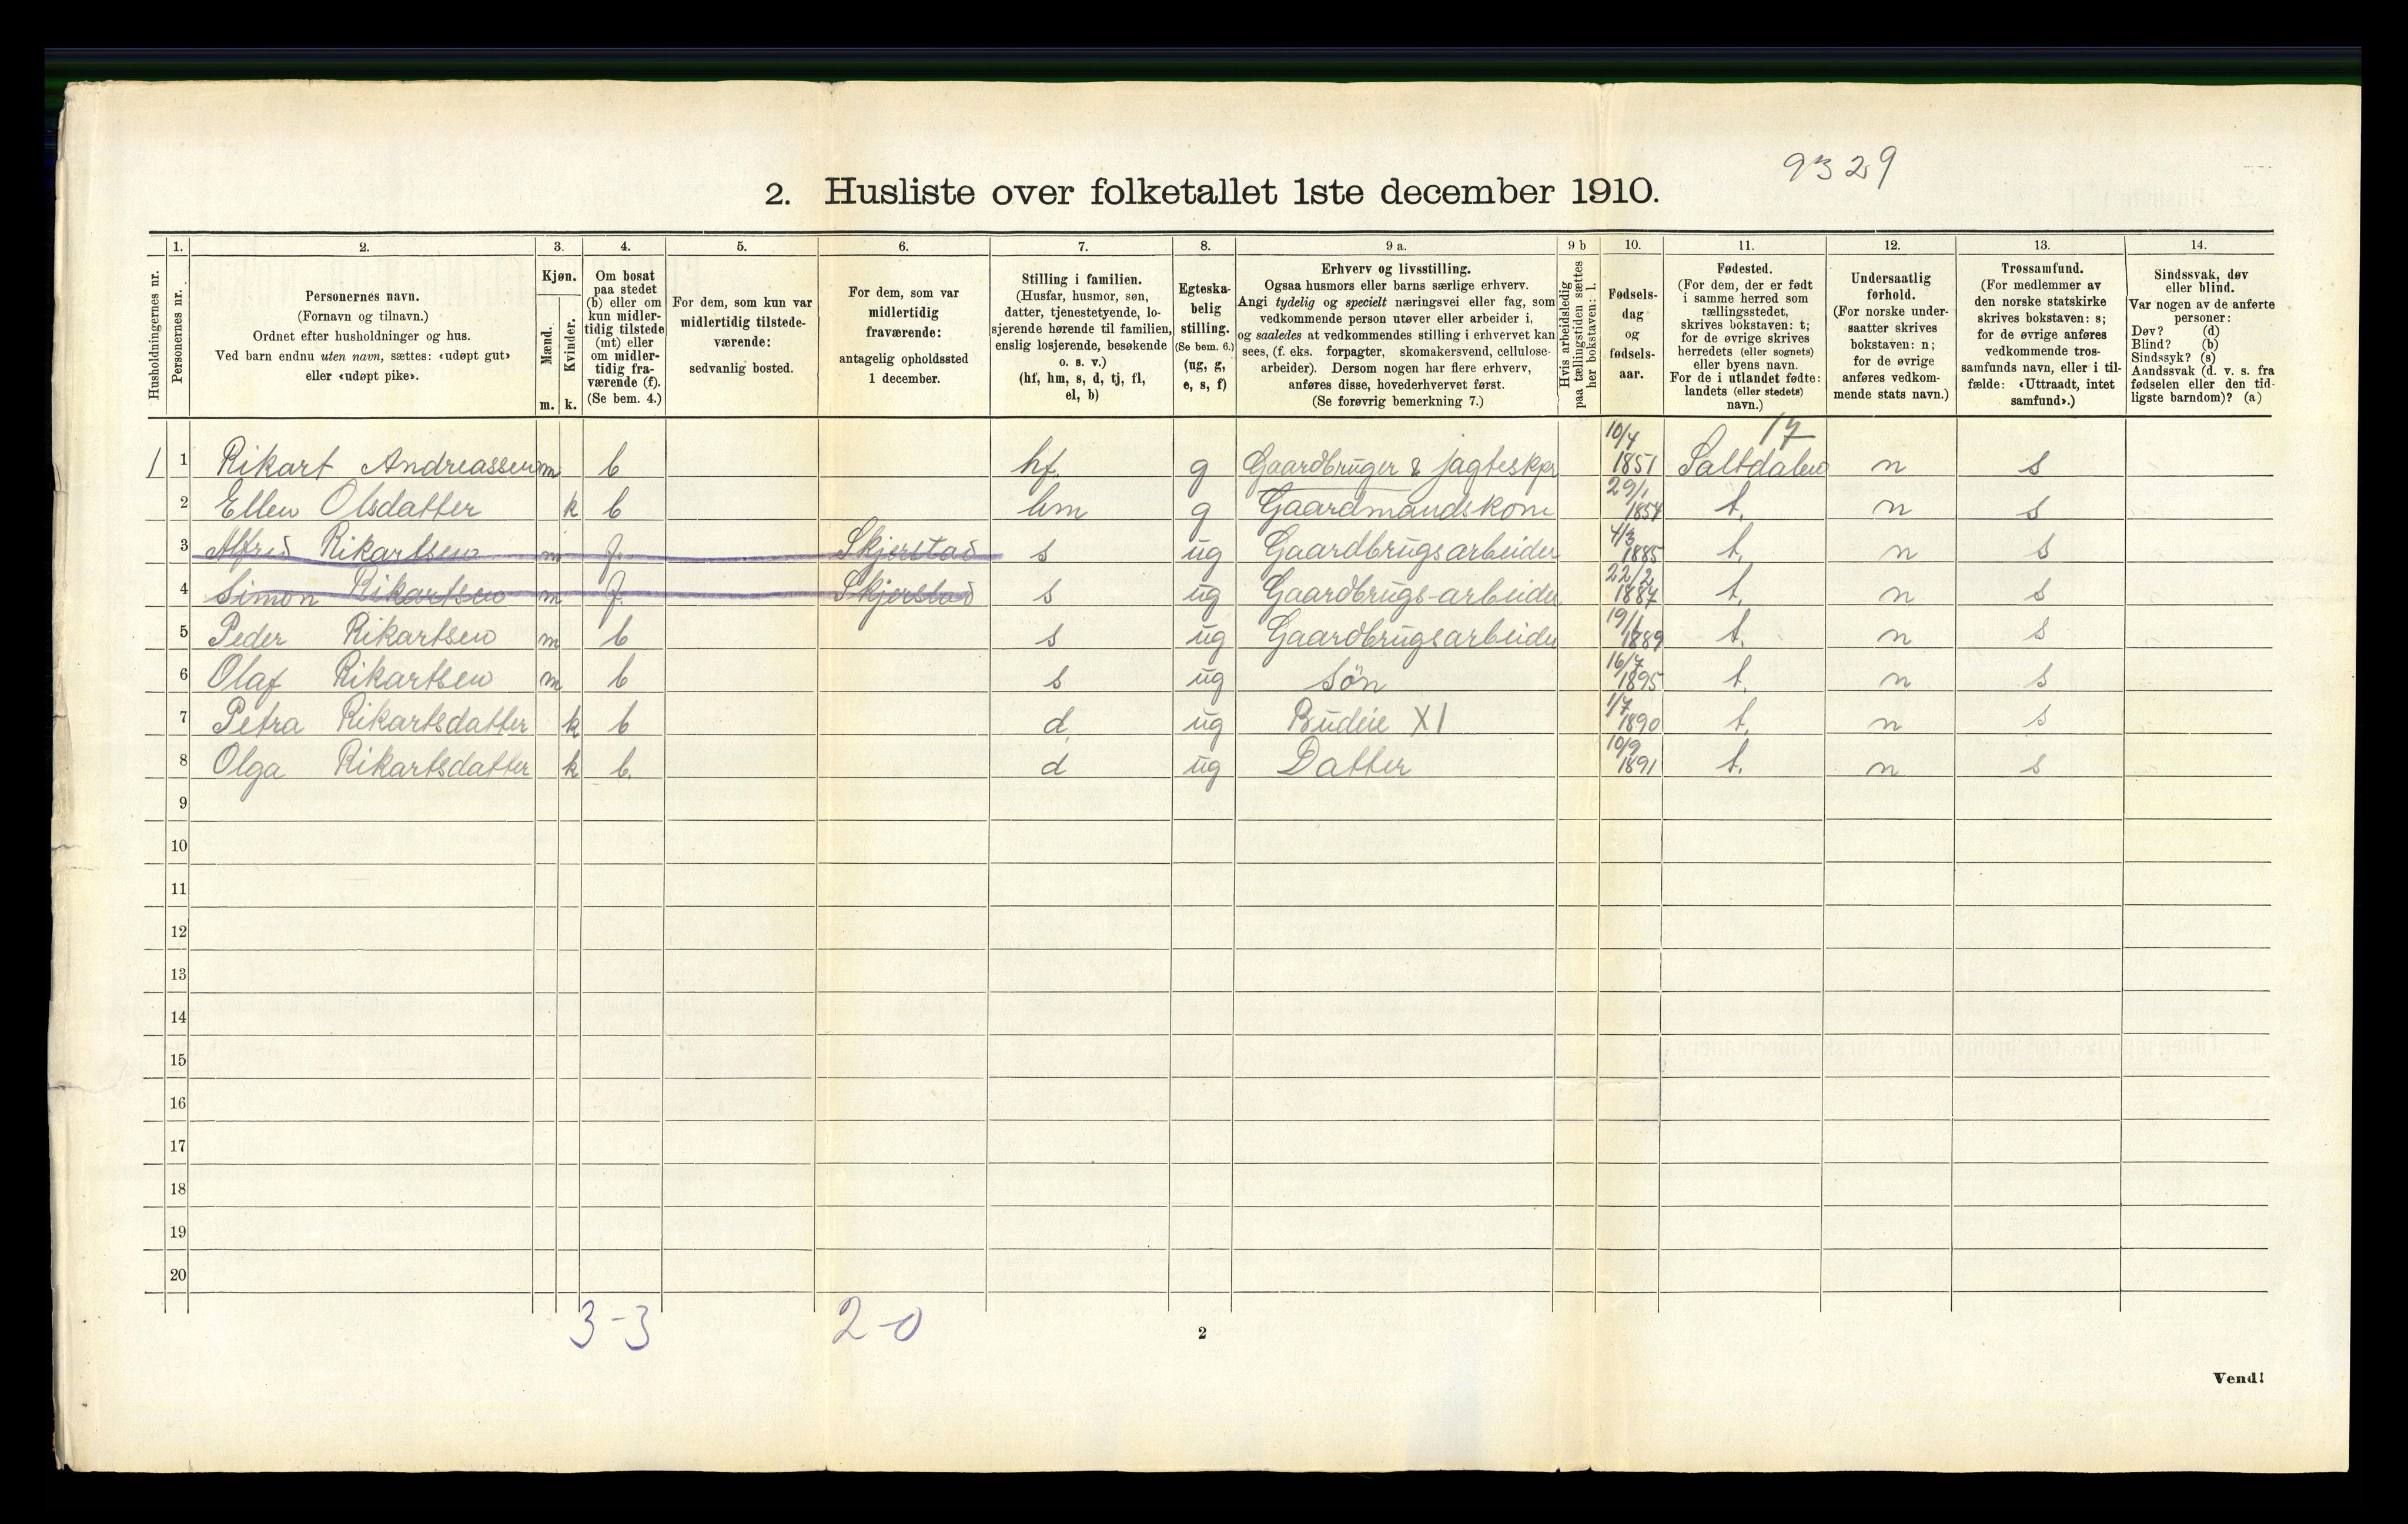 9329
2. Husliste over folketallet 1ste december 1910.
Husholdningernes nr.
1.
Personernes nr.
2.
Personernes navn.
(Fornavn og tilnavn.)
Ordnet efter husholdninger og hus.
Ved barn endnu uten navn, sættes: «udøpt gut»
eller «udøpt pike».
3.
Kjøn.
Mænd.
m.
Kvinder.
k.
4.
Om bosat
paa stedet
(b) eller om
kun midler-
tidig tilstede
(mt) eller
om midler-
tidig fra-
værende (f).
(Se bem. 4.)
5.
For dem, som kun var
midlertidig tilstede-
værende:
sedvanlig bosted.
6.
For dem, som var
midlertidig
fraværende:
antagelig opholdssted
1 december.
7.
Stilling i familien.
(Husfar, husmor, søn,
datter, tjenestetyende, lo-
sjerende hørende til familien,
enslig losjerende, besøkende
o. s. v.)
(hf, hm, s, d, tj, fl,
el, b)
8.
Egteska-
belig
stilling.
(Se bem. 6.)
(ug, g,
e, s, f)
9 a.
Erhverv og livsstilling.
Ogsaa husmors eller barns særlige erhverv.
Angi tydelig og specielt næringsvei eller fag, som
vedkommende person utøver eller arbeider i,
og saaledes at vedkommendes stilling i erhvervet kan
sees, (f. eks. forpagter, skomakersvend, cellulose-
arbeider). Dersom nogen har flere erhverv,
anføres disse, hovederhvervet først.
(Se forøvrig bemerkning 7.)
9 b
Hvis arbeidsledig
paa tællingstiden sættes
her bokstaven: l.
10.
Fødsels-
dag
og
fødsels-
aar.
11.
Fødested.
(For dem, der er født
i samme herred som
tællingsstedet,
skrives bokstaven: t;
for de øvrige skrives
herredets (eller sognets)
eller byens navn.
For de i utlandet fødte:
landets (eller stedets)
navn.)
12.
Undersaatlig
forhold.
(For norske under-
saatter skrives
bokstaven: n;
for de øvrige
anføres vedkom-
mende stats navn.)
13.
Trossamfund.
(For medlemmer av
den norske statskirke
skrives bokstaven: s;
for de øvrige anføres
vedkommende tros-
samfunds navn, eller i til-
fælde: «Uttraadt, intet
samfund».)
14.
Sindssvak, døv
eller blind.
Var nogen av de anførte
personer:
Døv? (d)
Blind? (b)
Sindssyk? (s)
Aandssvak (d. v. s. fra
fødselen eller den tid-
ligste barndom)? (a)
17
1 1 Rikart Andreassen m b hf. g Gaardbruger & jagteskpr 10/4 1851 Saltdalen n s
2 Ellen Olsdatter k b hm g Gaardmandskone 29/1 1854 t. n s
3 Alfred Rikartsen m f. Skjerstad s ug Gaardbrugsarbeider 4/3 1885 t. n s
4 Simon Rikartsen m f. Skjerstad s ug Gaardbrugs-arbeider 22/2 1887 t. n s
5 Peder Rikartsen m b s ug Gaardbrugsarbeider 19/1 1889 t. n s
6 Olaf Rikartsen m b s ug Søn 16/7 1895 t. n s
7 Petra Rikartsdatter k b d. ug Budeie X1 1/7 1890 t. n s
8 Olga Rikartsdatter k b. d ug Datter 10/9 1891 t. n s
9
10
11
12
13
14
15
16
17
18
19
20
3-3 2-0
2
Vend!